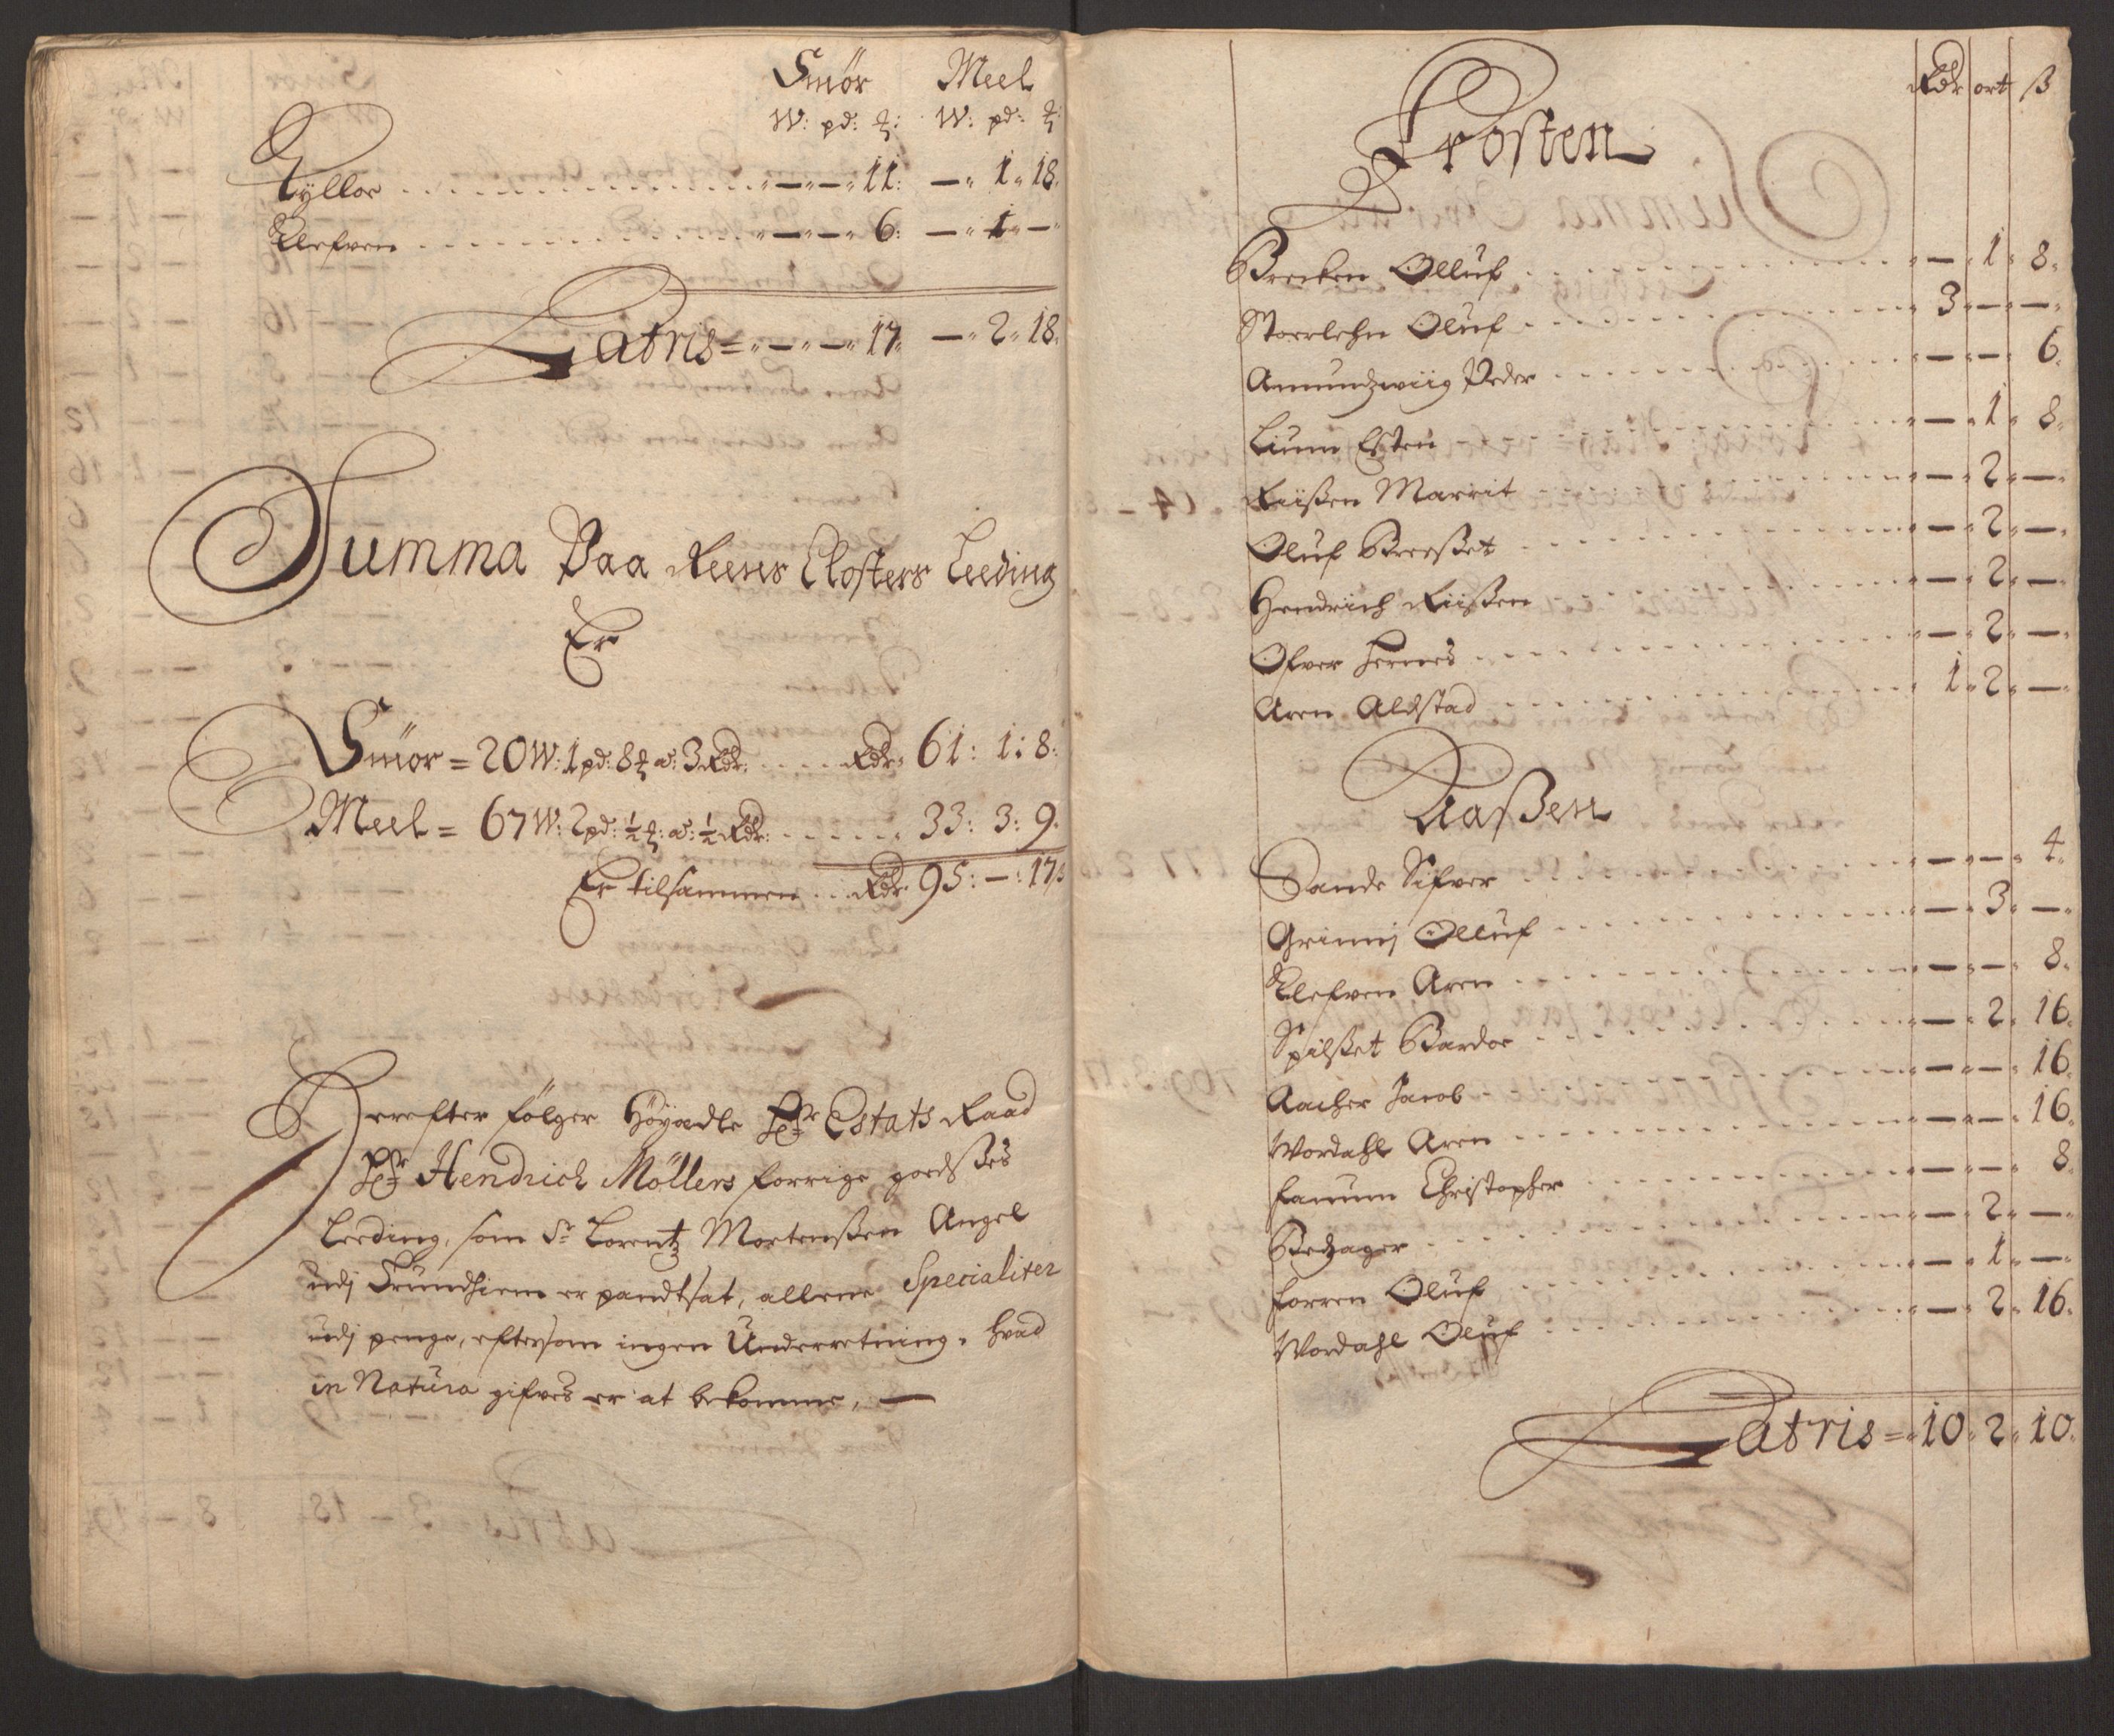 Smör Meel
W: pd: ℔: W: pd: ℔:
Gyllor . . . — — 11: — 1 18.
Klefven . . . — — 6: — 1 —
Latris = — — 17. — 2 18.
Summa Paa Reens Closters Leeding
Er
Smör = 20 W: 1 pd: 8 ℔ a: 3 Rdr: . . . Rdr: 61: 1: 8:
Meel = 67 W: 2 pd: ½ ℔: a: ½ Rdr: . . . 33: 3: 9.
Er tilsammen . . . Rdr: 95: —: 17:
Derefter fölger Höyædle Hr Estats Raad
Hr Hendrich Möllers forrige goedsses
Leeding, som Sr Lorentz Mortenssen Angel
udj Trundhiem er pandtsat, allene Specialiter
udj penge, eftersom ingen Underretning, hvad
in Natura gifves er at bekomme, —
Rdr ort ß
Frosten
Brecken Olluf . . . — 1 8.
Stoerlehn Oluf . . . 3 — —
Amundzwiig Peder . . . — — 6.
Lium Esten . . . — 1 8.
Riissen Marrit . . . — 2 —
Oluf Breesset . . . — 2 —
Hendrich Riissen . . . — 2 —
Ofver Hernes . . . — 2 —
Aren Aldstad . . . 1 2 —
Aassen
Sande Sifver . . . — — 4.
Grinnj Olluf . . . — 3 —
Klefven Aren . . . — — 8.
Spilsset Bardoe . . . — 2 16.
Aacher Jacob . . . — — 16.
Wordahl Aren . . . — — 16.
Fanum Christopher . . . — — 8.
Betzager . . . — 2 —
Forren Oluf . . . — 1 —
Wordahl Oluf . . . — 2 16.
Latris = 10 2 10.